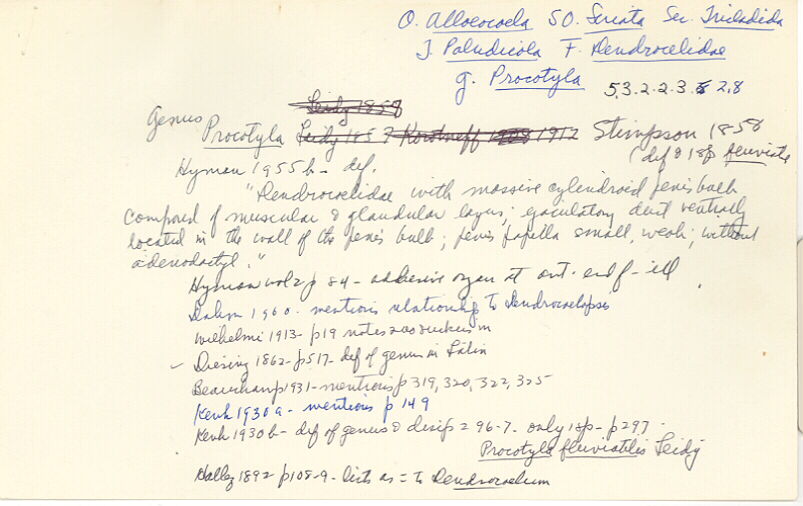 O. Alloeocoela SO. Seriata Sec. Tricladida
I. Paludicola F. Dendrocelidae
g. Procotyla 5.3.2.2.3. 2.8
Leidy 1858
Genus Procotyla Leidy 1857 Korotneff 1908 1912 Stimpson 1858
(def & 1sp fluviatile
Hyman 1955b - def.
"Dendrocoelidae with massive cylindroid penis bulb
composed of muscular & glandular layers; ejaculatory duct ventrally
located in the wall of the penis bulb; penis papilla small, weak; without
adenodactyl."
Hyman vol 2 p 84 - adhesive organ at ant. end f - ill
Dahm 1960 - mentions relationship to Dendrocoelopsis
Wilhelmi 1913 - p19 notes 2 as suckers in
Diesing 1862 - p517 - def of genus in Latin
Beauchamp 1931 - mentions p 319, 320, 322, 325
Kenk 1930a - mentions p 149
Kenk 1930b - def of genus & disc p 296-7. only 1 sp - p 297.
Procotyla fluviatilis Leidy
Hallez 1892 - p108-9 - Lists as = to Dendrocoelum